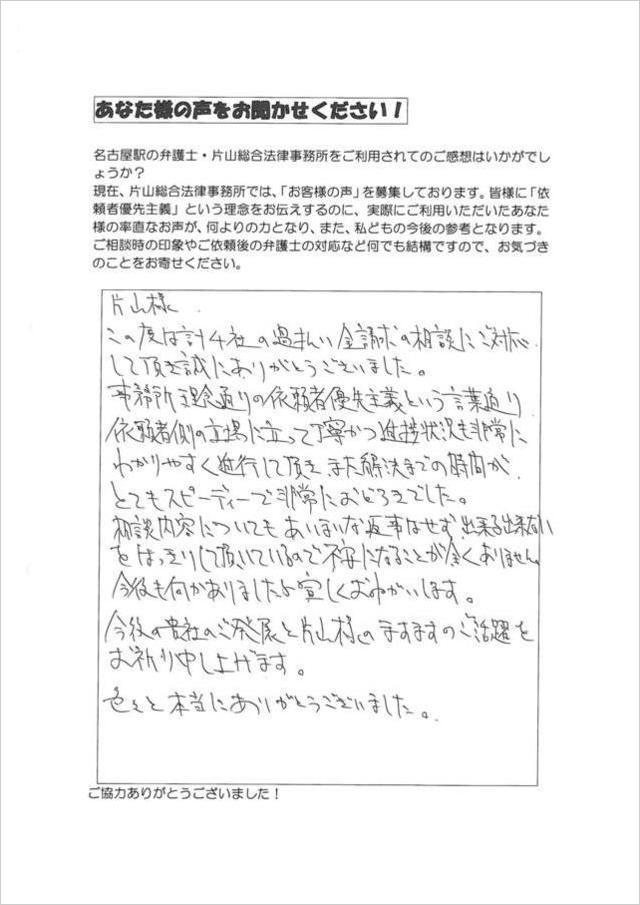 あなた様の声をお聞かせください！
名古屋駅の弁護士・片山総合法律事務所をご利用されてのご感想はいかがでし
ょうか？
現在、片山総合法律事務所では、「お客様の声」を募集しております。皆様に「依
頼者優先主義」という理念をお伝えするのに、実際にご利用いただいたあなた
様の率直なお声が、何よりの力となり、また、私どもの今後の参考となります。
ご相談時の印象やご依頼後の弁護士の対応など何でも結構ですので、お気づき
のことをお寄せください。
片山様
この度は計4社の過払い金請求の相談にご対応
して頂き誠にありがとうございました。
事務所理念通りの依頼者優先主義という言葉通り
依頼者側の立場に立って丁寧かつ進捗状況も非常に
わかりやすく進行して頂き、また解決までの時間が
とてもスピーディーで非常におどろきでした。
相談内容についてもあいまいな返事はせず出来る出来ない
をはっきりして頂いているので不安になることが全くありません。
今後も何かがありましたら宜しくおねがいします。
今後の貴社のご発展と片山様のますますのご活躍を
お祈り申し上げます。
色々と本当にありがとうございました。
ご協力ありがとうございました！